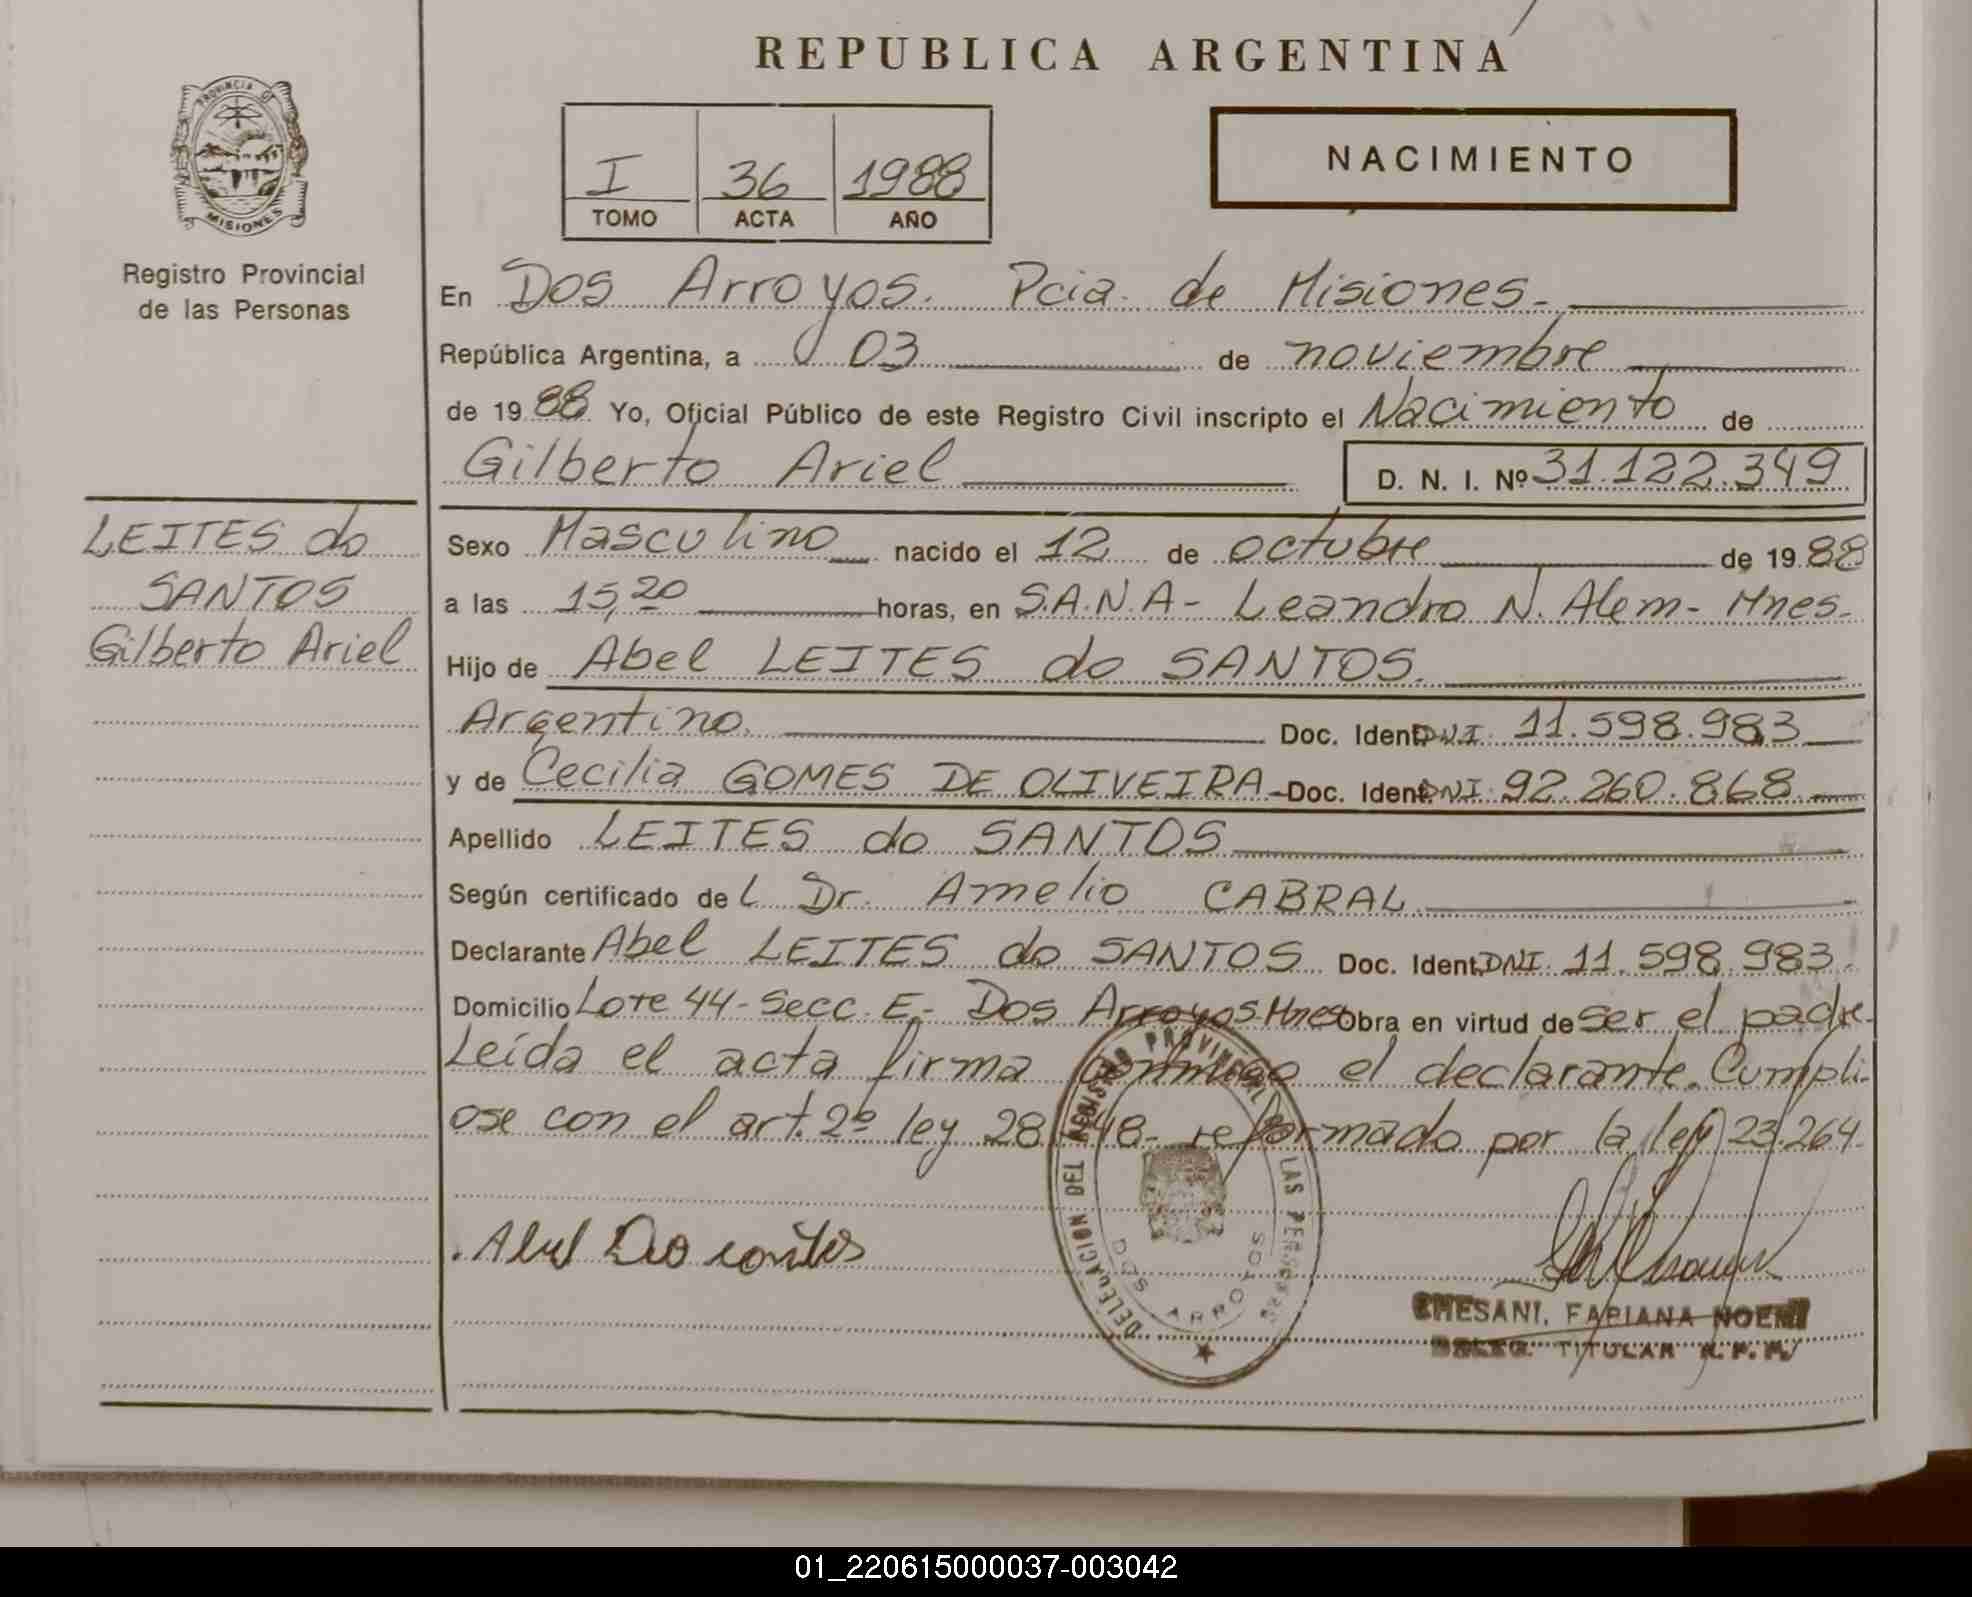 REPUBLICA ARGENTINA
PROVINCIA DE
MISIONES
Registro Provincial
de las Personas
I 36 1988
TOMO ACTA AÑO
NACIMIENTO
En Dos Arroyos. Pcia. de Misiones.-
República Argentina, a 03 de noviembre
de 1988 Yo, Oficial Público de este Registro Civil inscripto el Nacimiento de
Gilberto Ariel D. N. I. Nº 31.122.349
LEITES do
SANTOS
Gilberto Ariel
Sexo Masculino nacido el 12 de octubre de 1988
a las 15,20 horas, en S.A.N.A- Leandro N. Alem- Mnes.
Hijo de Abel LEITES do SANTOS.
Argentino. Doc. Ident. DNI. 11.598.983
y de Cecilia GOMES DE OLIVEIRA- Doc. Ident. DNI. 92.260.868
Apellido LEITES do SANTOS
Según certificado del Dr. Amelio CABRAL
Declarante Abel LEITES do SANTOS Doc. Ident. DNI. 11.598.983.
Domicilio Lote 44- Secc. E.- Dos Arroyos. Mnes Obra en virtud de ser el padre.
Leída el acta firma conmigo el declarante. Cumpli-
ose con el art. 2º ley 28/48- reformado por la ley 23.264.
DELEGACION DEL REGISTRO PROVINCIAL DE LAS PERSONAS
DOS ARROYOS
CHESANI, FABIANA NOEMI
DELEG. TITULAR R.P.P.
01_220615000037-003042